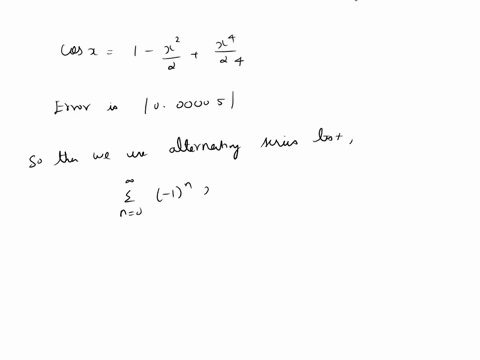 cos x = 1 - x²/2 + x⁴/24
Error is |0.00005|
So then we use alternating series test,
∞ Σ n=0 (-1)ⁿ,